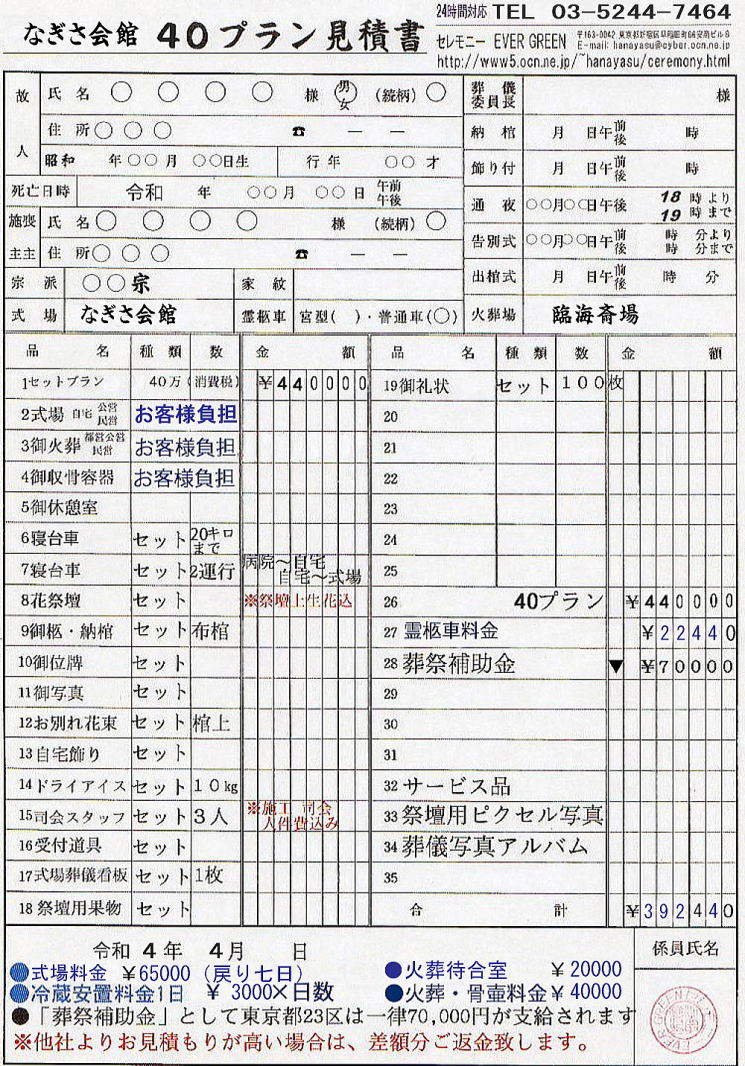 24時間対応 TEL 03-5244-7464
なぎさ会館 40プラン見積書
セレモニー EVER GREEN
E-mail: hanayasu@cyber.ocn.ne.jp
http://www5.ocn.ne.jp/~hanayasu/ceremony.html
故人 氏名 〇 〇 〇 〇 様 男 女 (続柄) 〇
住所 〇 〇 〇 ☎ ― ―
昭和 年〇〇月 〇〇日生 行年 〇〇才
死亡日時 令和 年 〇〇月 〇〇日 午前 午後
施主 喪主 氏名 〇 〇 〇 〇 様 (続柄) 〇
住所 〇 〇 〇 ☎ ― ―
宗派 〇〇宗 家紋
式場 なぎさ会館 霊柩車 宮型( )・普通車(〇)
葬儀委員長 様
納棺 月 日午前後 時
飾り付 月 日午前後 時
通夜 〇〇月〇〇日午後 18時より 19時まで
告別式 〇〇月〇〇日午前後 時 分より 時 分まで
出棺式 月 日午前後 時 分
火葬場 臨海斎場
品名 種類 数 金額
1セットプラン 40万(消費税) ¥440000
2式場 自宅 公営 民営 お客様負担
3御火葬 都営公営 民営 お客様負担
4御収骨容器 お客様負担
5御休憩室
6寝台車 セット 20キロまで
7寝台車 セット 2運行 病院~自宅 自宅~式場
8花祭壇 セット ※祭壇上生花込
9御柩・納棺 セット 布棺
10御位牌 セット
11御写真 セット
12お別れ花束 セット 棺上
13自宅飾り セット
14ドライアイス セット 10kg
15司会スタッフ セット 3人 ※施工 司会 人件費込み
16受付道具 セット
17式場葬儀看板 セット 1枚
18祭壇用果物 セット
品名 種類 数 金額
19御礼状 セット 100枚
20
21
22
23
24
25
26 40プラン ¥440000
27 霊柩車料金 ¥22440
28 葬祭補助金 ▼ ¥70000
29
30
31
32 サービス品
33 祭壇用ピクセル写真
34 葬儀写真アルバム
35
合計 ¥392440
令和 4年 4月 日
係員氏名
●式場料金 ¥65000(戻り七日)
●火葬待合室 ¥20000
●冷蔵安置料金1日 ¥3000×日数
●火葬・骨壺料金¥40000
●「葬祭補助金」として東京都23区は一律70,000円が支給されます
※他社よりお見積もりが高い場合は、差額分ご返金致します。